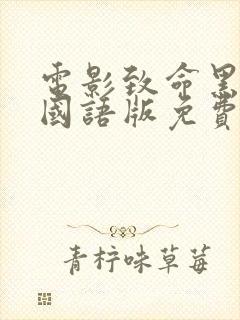 電影致命黑
國語版免費
青柠味草莓